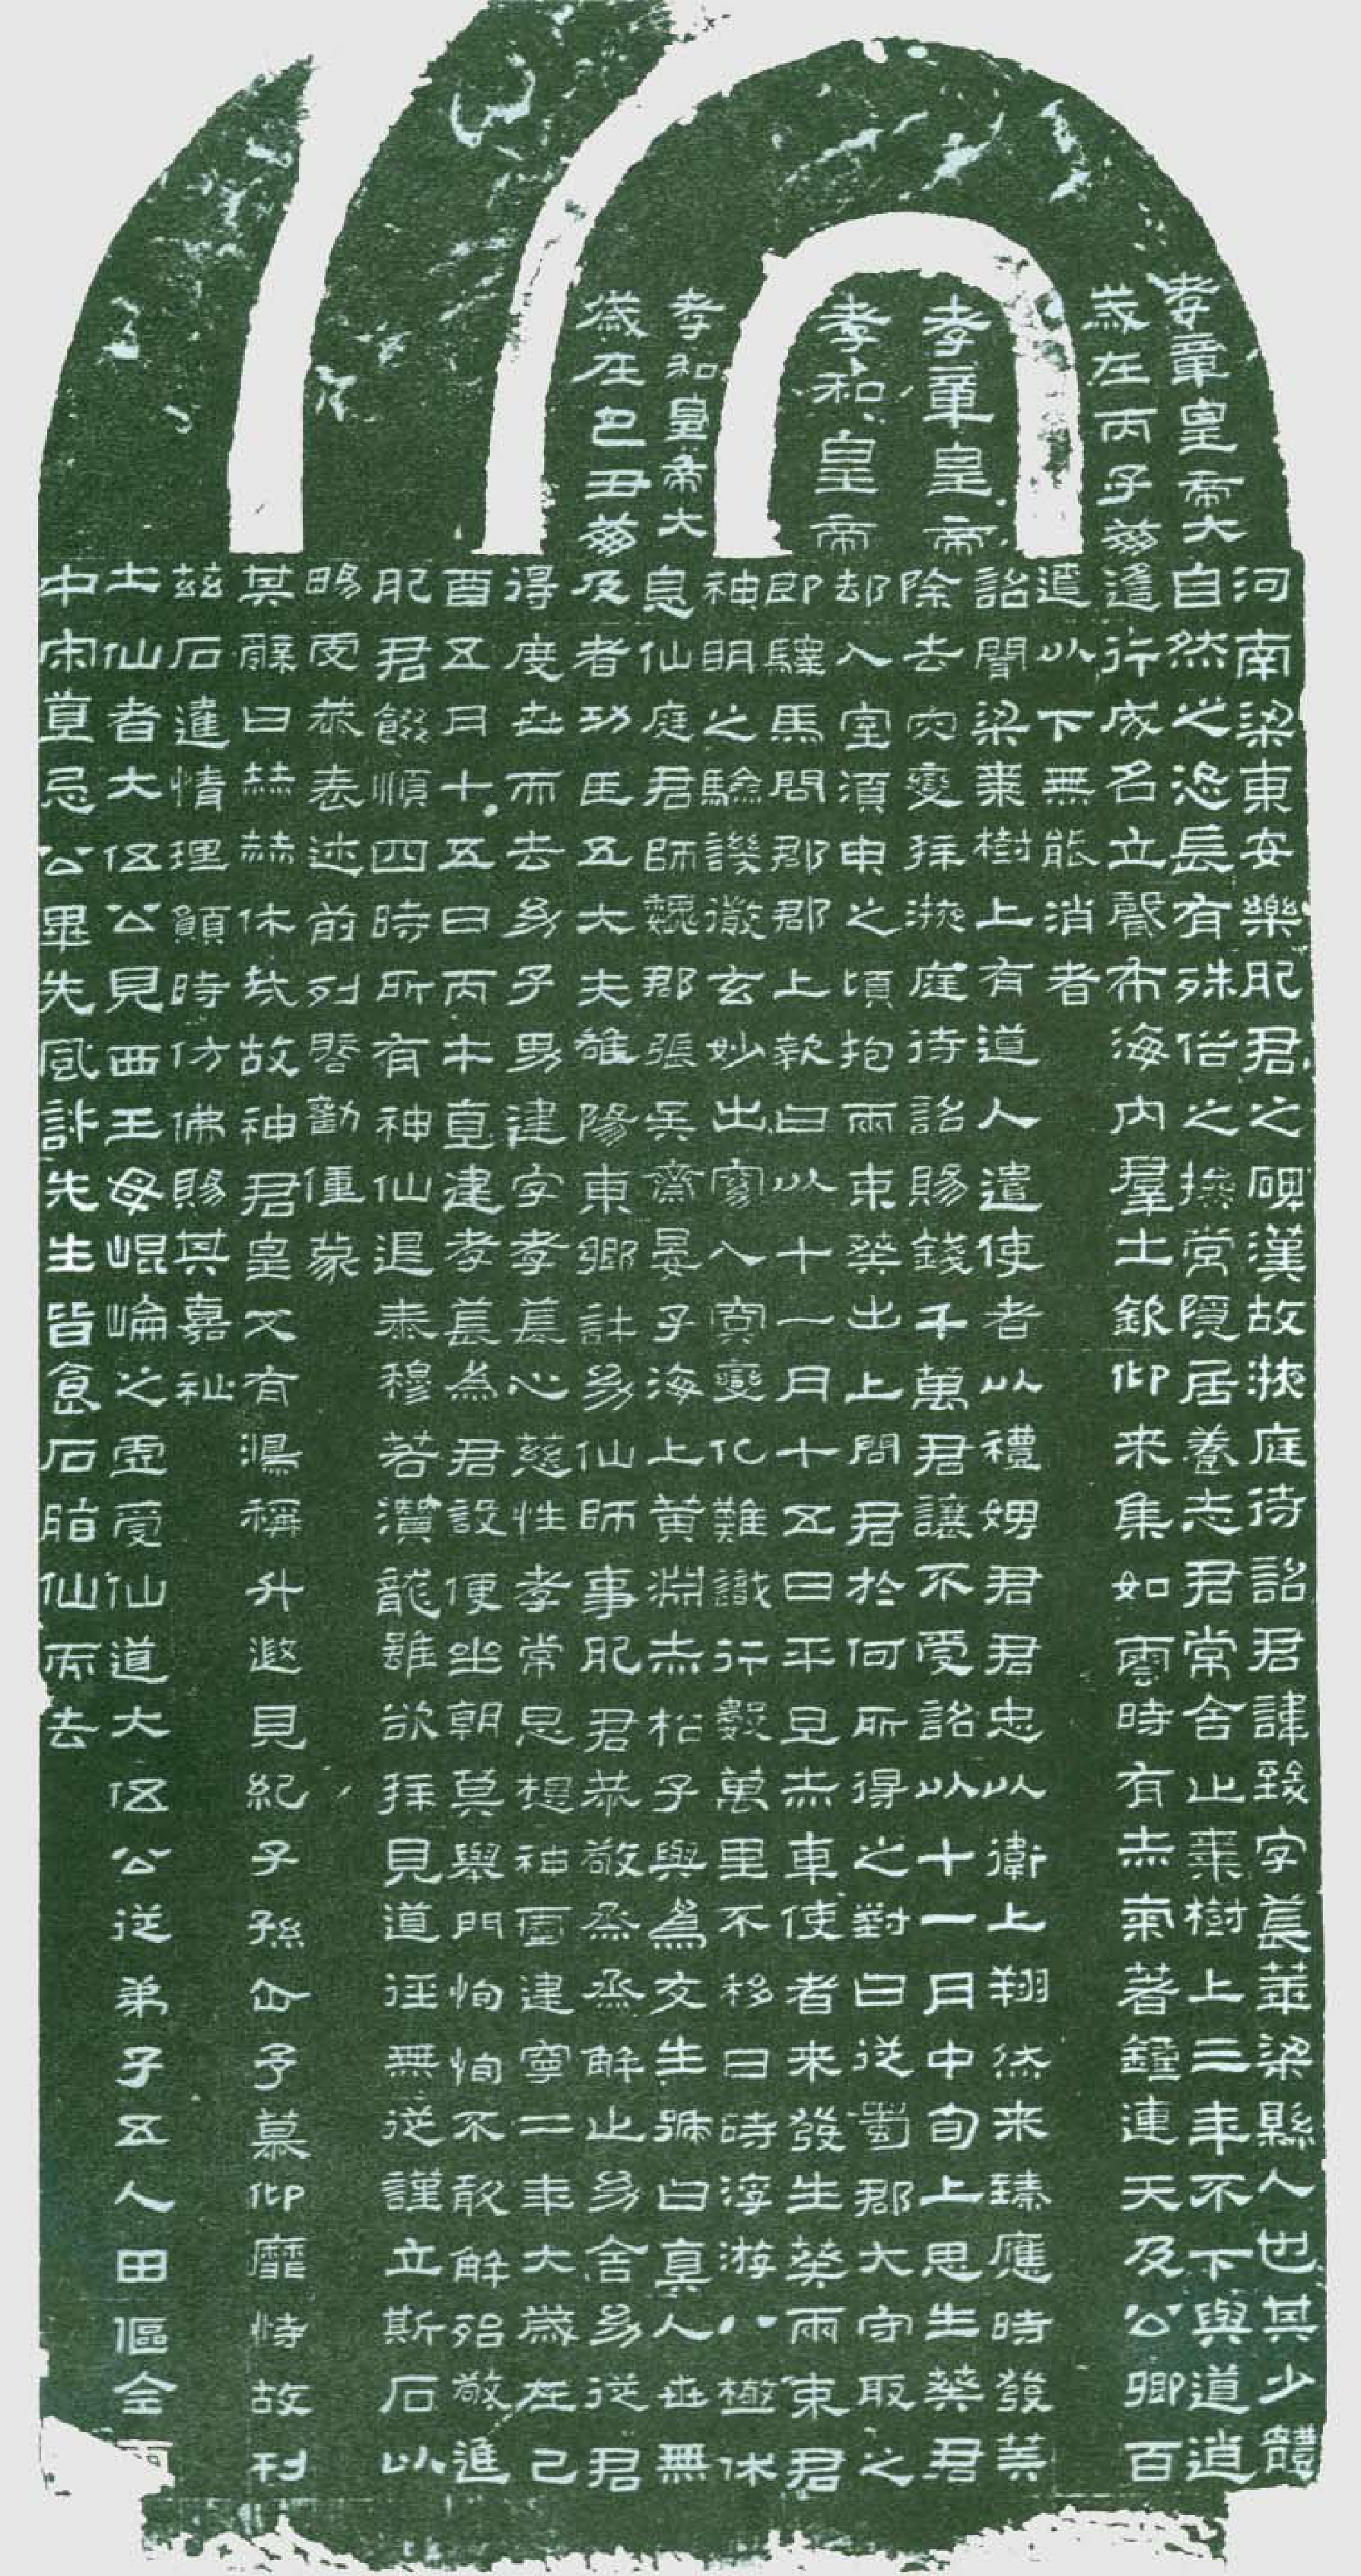 孝章皇帝
孝和皇帝
孝章皇帝大
歲在丙子崩
孝和皇帝大
歲在己丑崩
河南梁東安樂肥君之碑漢故掖庭待詔君諱致字萇華梁縣人也其少體
自然之恣長有殊俗之操常隱居養志君常舍止棗樹上三年不下與道逍
遙行成名立聲布海內羣士欽仰来集如雲時有赤氣著鐘連天及公卿百
遣以下無能消者
詔聞梁棗樹上有道人遣使者以禮娉君君忠以衛上翔然来臻應時發筭
除去灾變拜掖庭待詔賜錢千萬君讓不受詔以十一月中旬上思生葵君
却入室須臾之頃抱兩束葵出上問君於何所得之對曰從蜀郡大守取之
即驛馬問郡郡上報曰以十一月十五日平旦赤車使者来發生葵兩束君
神明之驗譏徹玄妙出窈入冥變化難識行數萬里不移日時浮游八極休
息仙庭君師魏郡張吳齋晏子海上黃淵赤松子與為友生號曰真人世無
及者功臣五大夫雒陽東鄉許幼仙師事肥君恭敬烝烝解止幼舍幼從君
得度世而去幼子男建字孝萇心慈性孝常思想神靈建寧二年大歲在己
酉五月十五日丙午直建孝萇為君設便坐朝莫舉門恂恂不敢解殆敬進
肥君餟順四時所有神仙退泰穆若瀆龍雖欲拜見道徑無從謹立斯石以
暢虔恭表述前列啓勸僮蒙
其辭曰赫赫休哉故神君皇又有鴻稱升遐見紀子孫企予慕仰靡恃故刊
茲石達情理願時仿佛賜其嘉祉
土仙者大伍公見西王母崐崘之虛受仙道大伍公從弟子五人田傴全
中宋直忌公畢先風許先生皆食石脂仙而去